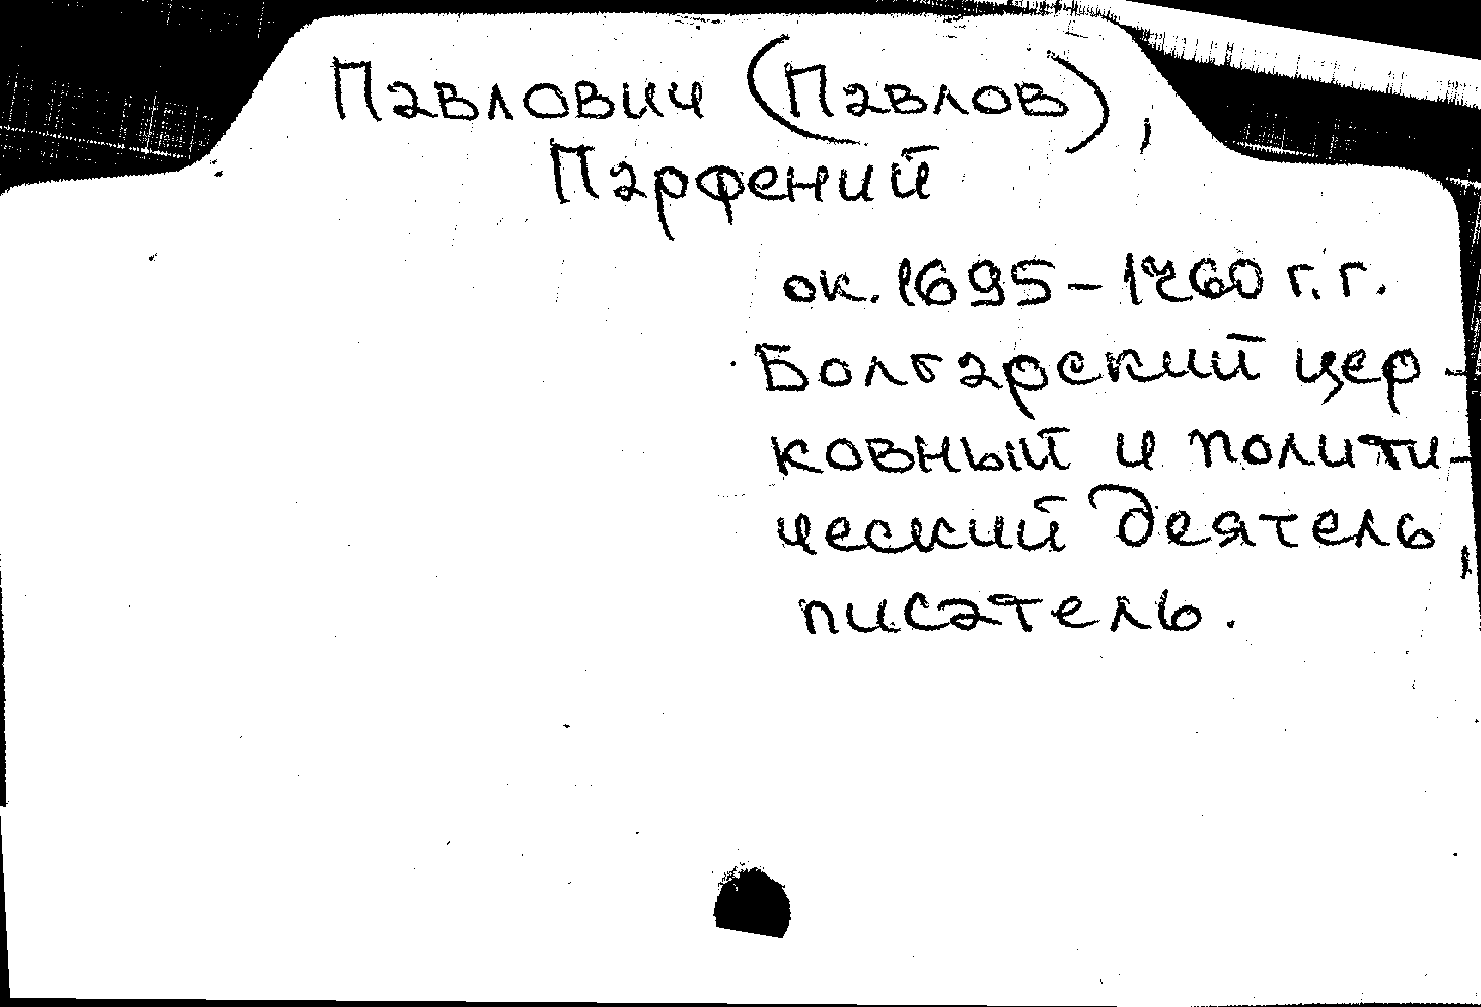 Павлович (Павлов),
Парфений
ок. 1695-1760 г.г.
Болгарский цер-
ковный и полити-
ческий деятель,
писатель.